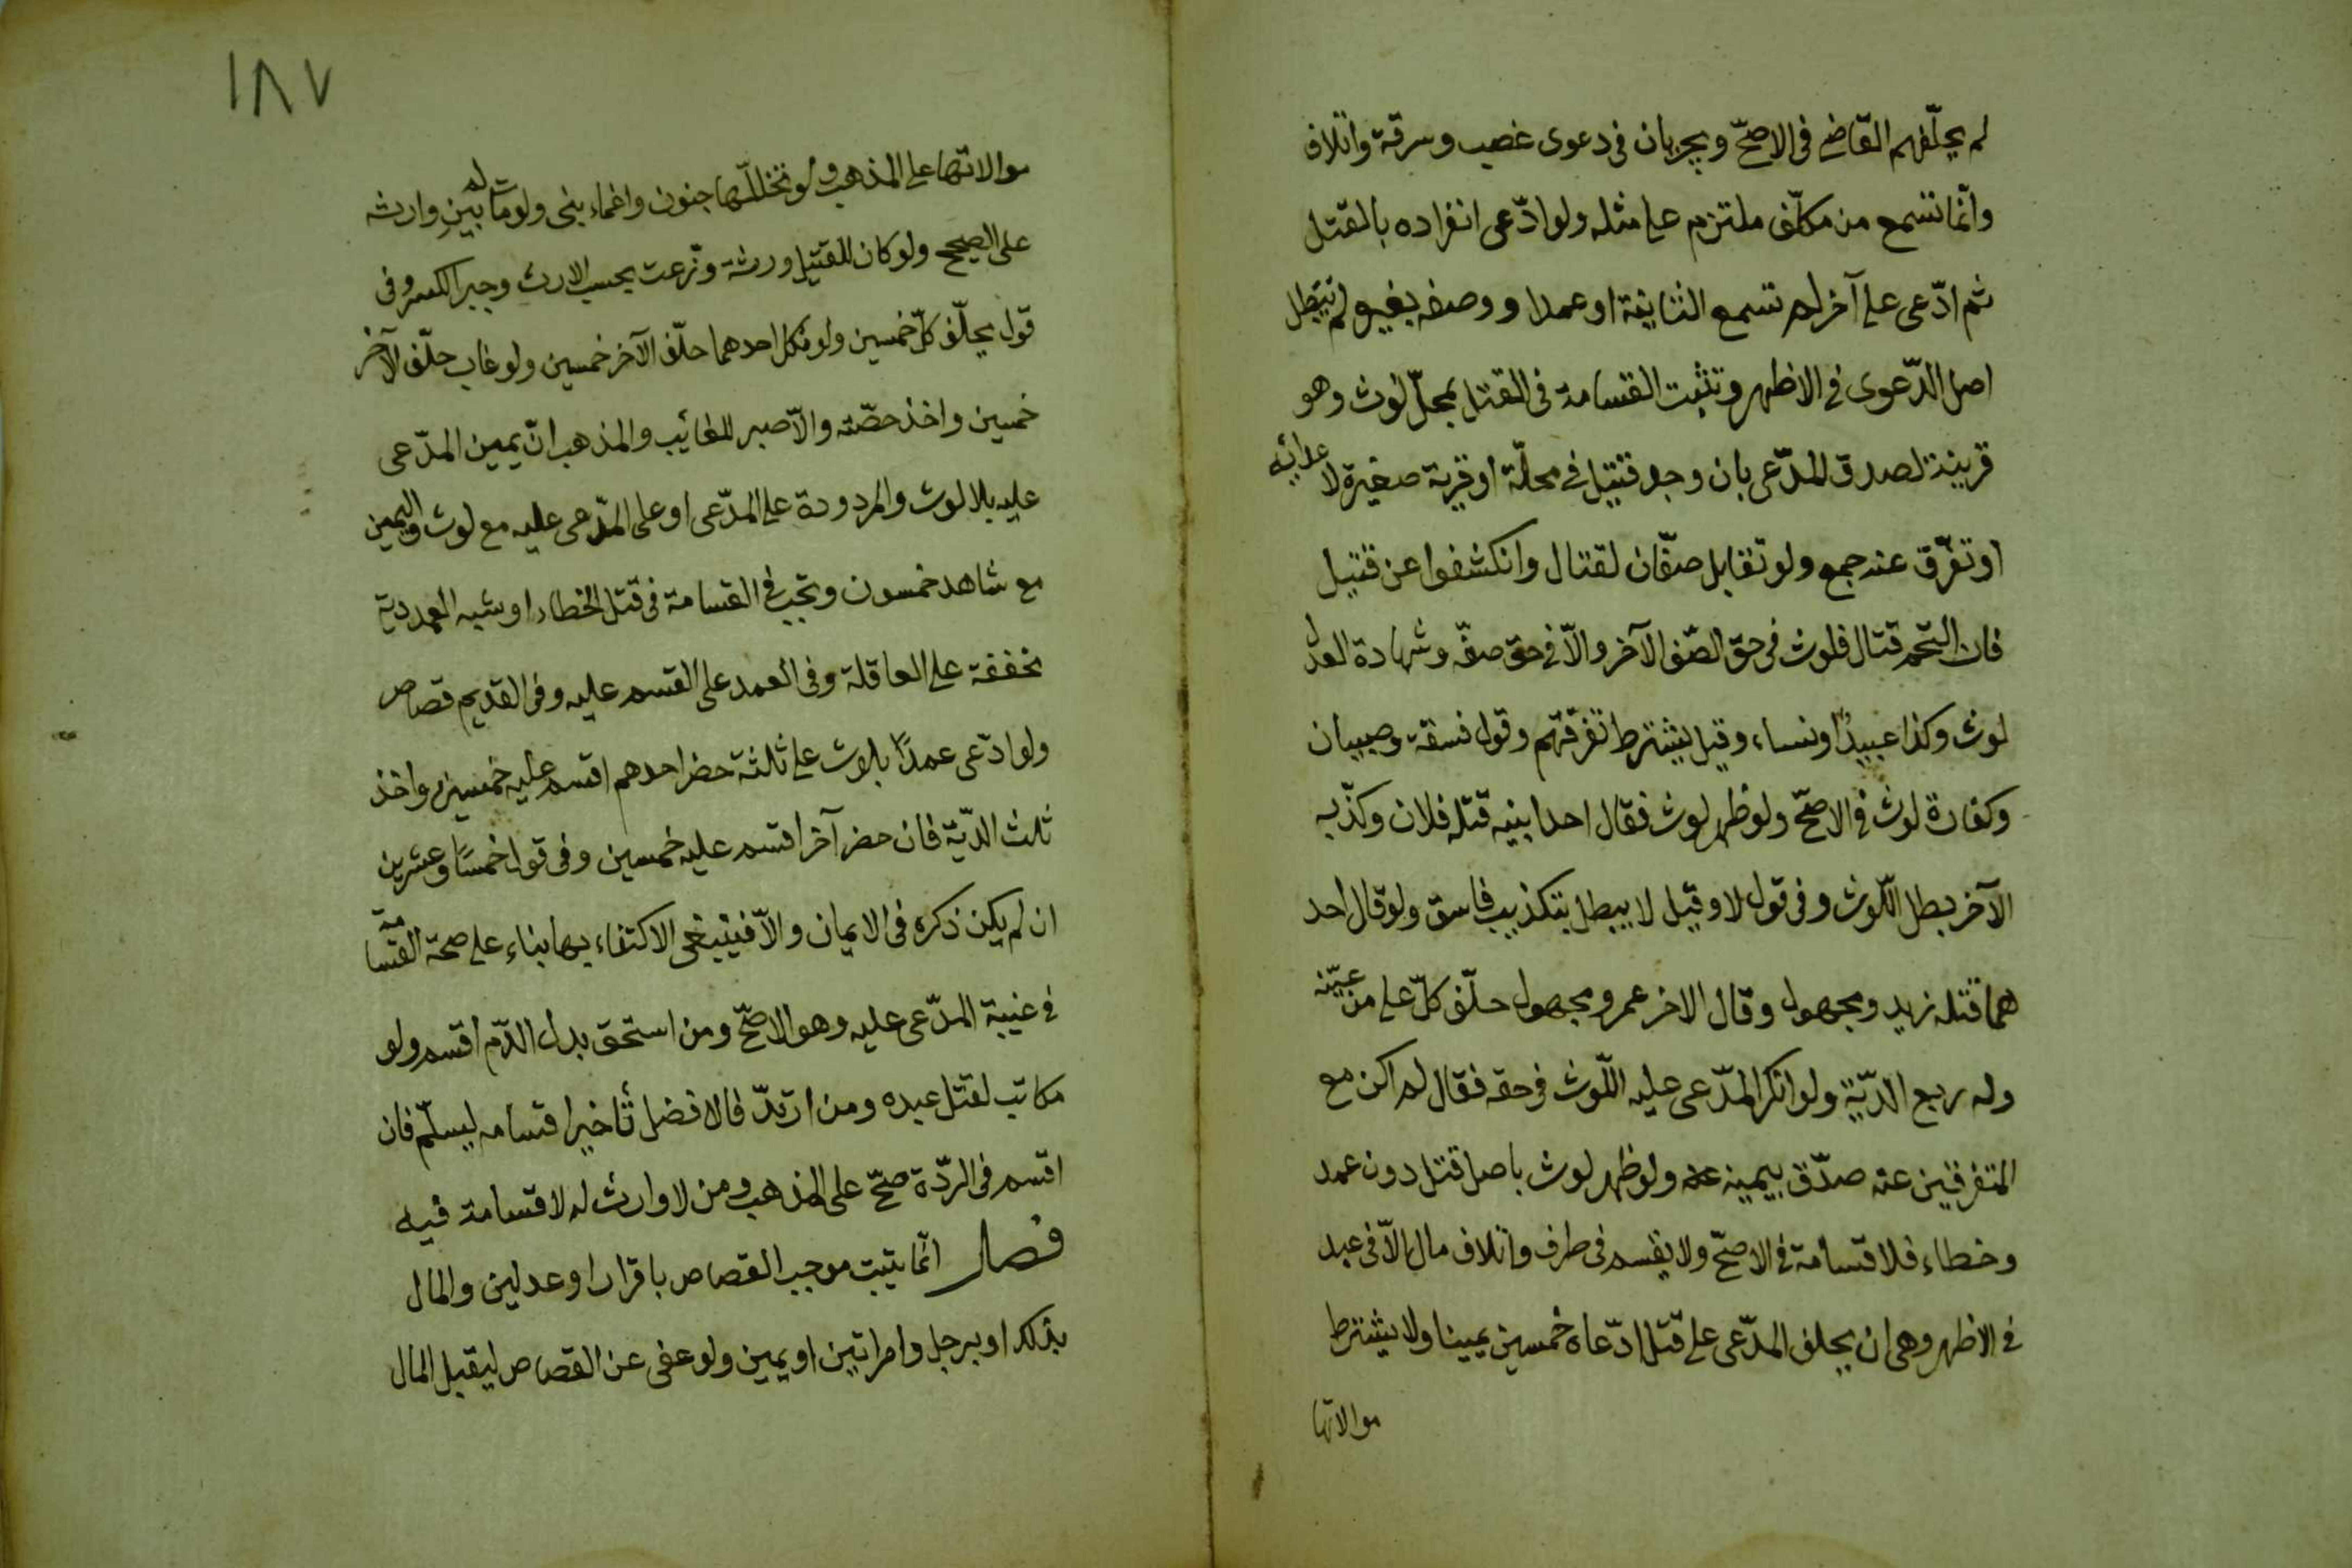 لم يحلّفهم القاضى فى الاصحّ ويجريان فى دعوى غصب وسرقة واتلاف
وانّما تسمع من مكلّف ملتزم على مثله ولو ادّعى انفراده بالقتل
ثم ادّعى على آخر لم تسمع الثانية او عمدا ووصفه بغيره لم يبطل
اصل الدّعوى فى الاظهر وتثبت القسامة فى القتل بمحلّ لوث وهو
قرينة لصدق المدّعى بان وجد قتيل فى محلّة او قرية صغيرة لاعدائه
او تفرّق عنه جمع ولو تقابل صفّان لقتال وانكشفوا عن قتيل
فان التحم قتال فلوث فى حق الصّف الآخر والاّ فى حق صفّه وشهادة العدل
لوث وكذا عبيدٌ او نساء وقيل يشترط تفرّقهم وقول فسقة وصبيان
وكفارة لوث فى الاصحّ ولو ظهر لوث فقال احد ابنيه قتله فلان وكذّبه
الآخر بطل اللّوث وفى قول لا وقيل لا يبطل بتكذيب فاسق ولو قال احد
هما قتله زيد ومجهول وقال الاخر عمر ومجهول حلّف كلّ على من عيّنه
وله ربع الدّيّة ولو انكر المدّعى عليه اللّوث فى حقه فقال لم اكن مع
المتفرقين عنه صدّق بيمينه ولو ظهر لوث باصل قتل دون عمد
وخطاء فلا قسامة فى الاصحّ ولا يقسم فى طرف واتلاف مال الاّ فى عبد
فى الاظهر وهى ان يحلف المدّعى على قتل ادّعاه خمسين يمينا ولا يشترط
موالاتها
١٨٧
موالاتها على المذهب ولو تخلّلها جنون واغماء بنى ولو مات لم يبن وارثه
على الصحيح ولو كان للقتيل ورثة وزّعت بحسب الارث وجبر الكسر وفى
قول يحلّف كلّ خمسين ولو نكل احدهما حلّف الآخر خمسين ولو غاب حلّف الآخر
خمسين واخذ حصّته والاّ صبر للغائب والمذهب انّ يمين المدّعى
عليه بلا لوث والمردودة على المدّعى او على المدّعى عليه مع لوث واليمين
مع شاهد خمسون وتجب فى القسامة فى قتل الخطاء او شبه العمد دية
مخففة على العاقلة وفى العمد على القسم عليه وفى القديم قصاص
ولو ادّعى عمدًا بلوث على ثلثة حضر احدهم اقسم عليه خمسين واخذ
ثلث الدّيّة فان حضر آخر اقسم عليه خمسين وفى قول خمسًا وعشرين
ان لم يكن ذكره فى الايمان والاّ فينبغى الاكتفاء بها بناء على صحة القسامة
فى غيبة المدّعى عليه وهو الاصحّ ومن استحق بدل الدّم اقسم ولو
مكاتب لقتل عبده ومن ارتدّ فالافضل تأخير اقسامه ليسلّم فان
اقسم فى الردّة صحّ على المذهب ومن لا وارث له لا قسامة فيه
فصل انّما يثبت موجب القصاص باقرار او عدلين والمال
بذلك او برجل وامراتين او يمين ولو عفى عن القصاص ليقبل المال